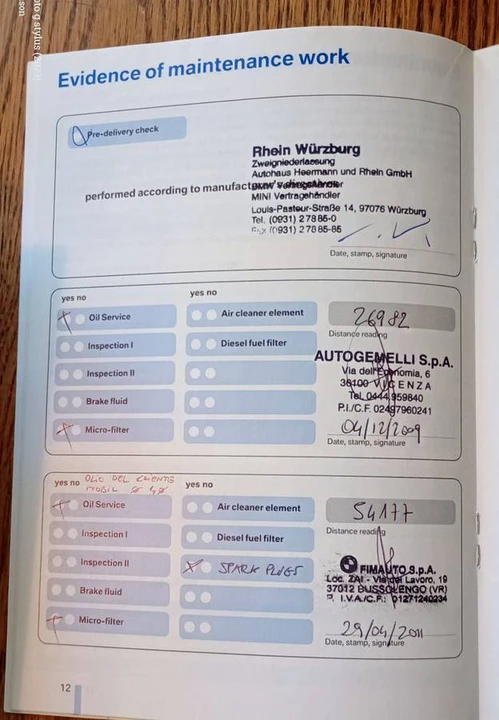 Evidence of maintenance work
Pre-delivery check
performed according to manufac
Rhein Würzburg
Zweigniederlassung
Autohaus Heermann und Rhein GmbH
MINI Vertragshändler
Louis-Pasteur-Straße 14, 97076 Würzburg
Tel. (0931) 27885-0
Fax (0931) 27885-85
Date, stamp, signature
yes no
yes no
X Oil Service
Inspection I
Inspection II
Brake fluid
X Micro-filter
Air cleaner element
Diesel fuel filter
26982
Distance reading
AUTOGEMELLI S.p.A.
Via dell'Economia, 6
36100 VICENZA
Tel. 0444.959840
P.I./C.F. 02497960241
04/12/2009
Date, stamp, signature
OLIO DEL CLIENTE
MOBIL
yes no
yes no
X Oil Service
Inspection I
Inspection II
Brake fluid
X Micro-filter
Air cleaner element
Diesel fuel filter
X SPARK PLUGS
54177
Distance reading
FIMAUTO S.p.A.
Loc. ZAI - Via del Lavoro, 19
37012 BUSSOLENGO (VR)
P. I.V.A./C.F.: 01271240234
29/04/2011
Date, stamp, signature
12